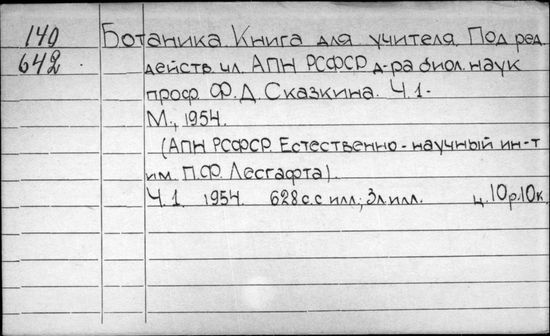 140 Ботаника. Книга для учителя. Под ред.
642 действ. чл. АПН РСФСР д-ра биол. наук
проф. Ф. Д. Сказкина. Ч. 1-
М., 1954.
(АПН РСФСР. Естественно-научный ин-т
им. П.Ф. Лесгафта).
Ч. 1. 1954. 628 с. с илл.; 3 л. илл. ц. 10р.10к.